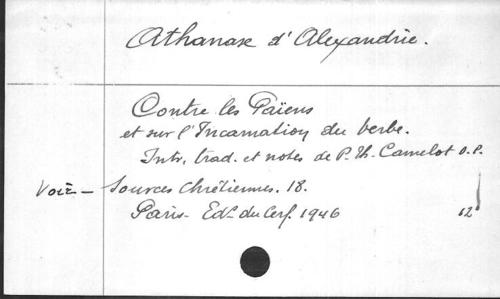 Athanase d'Alexandrie.
Contre les Païens
et sur l'Incarnation du verbe.
Intr. trad. et notes de P. Th. Camelot O.P.
Voir - Sources Chrétiennes. 18.
Paris - Edns du Cerf. 1946 12°